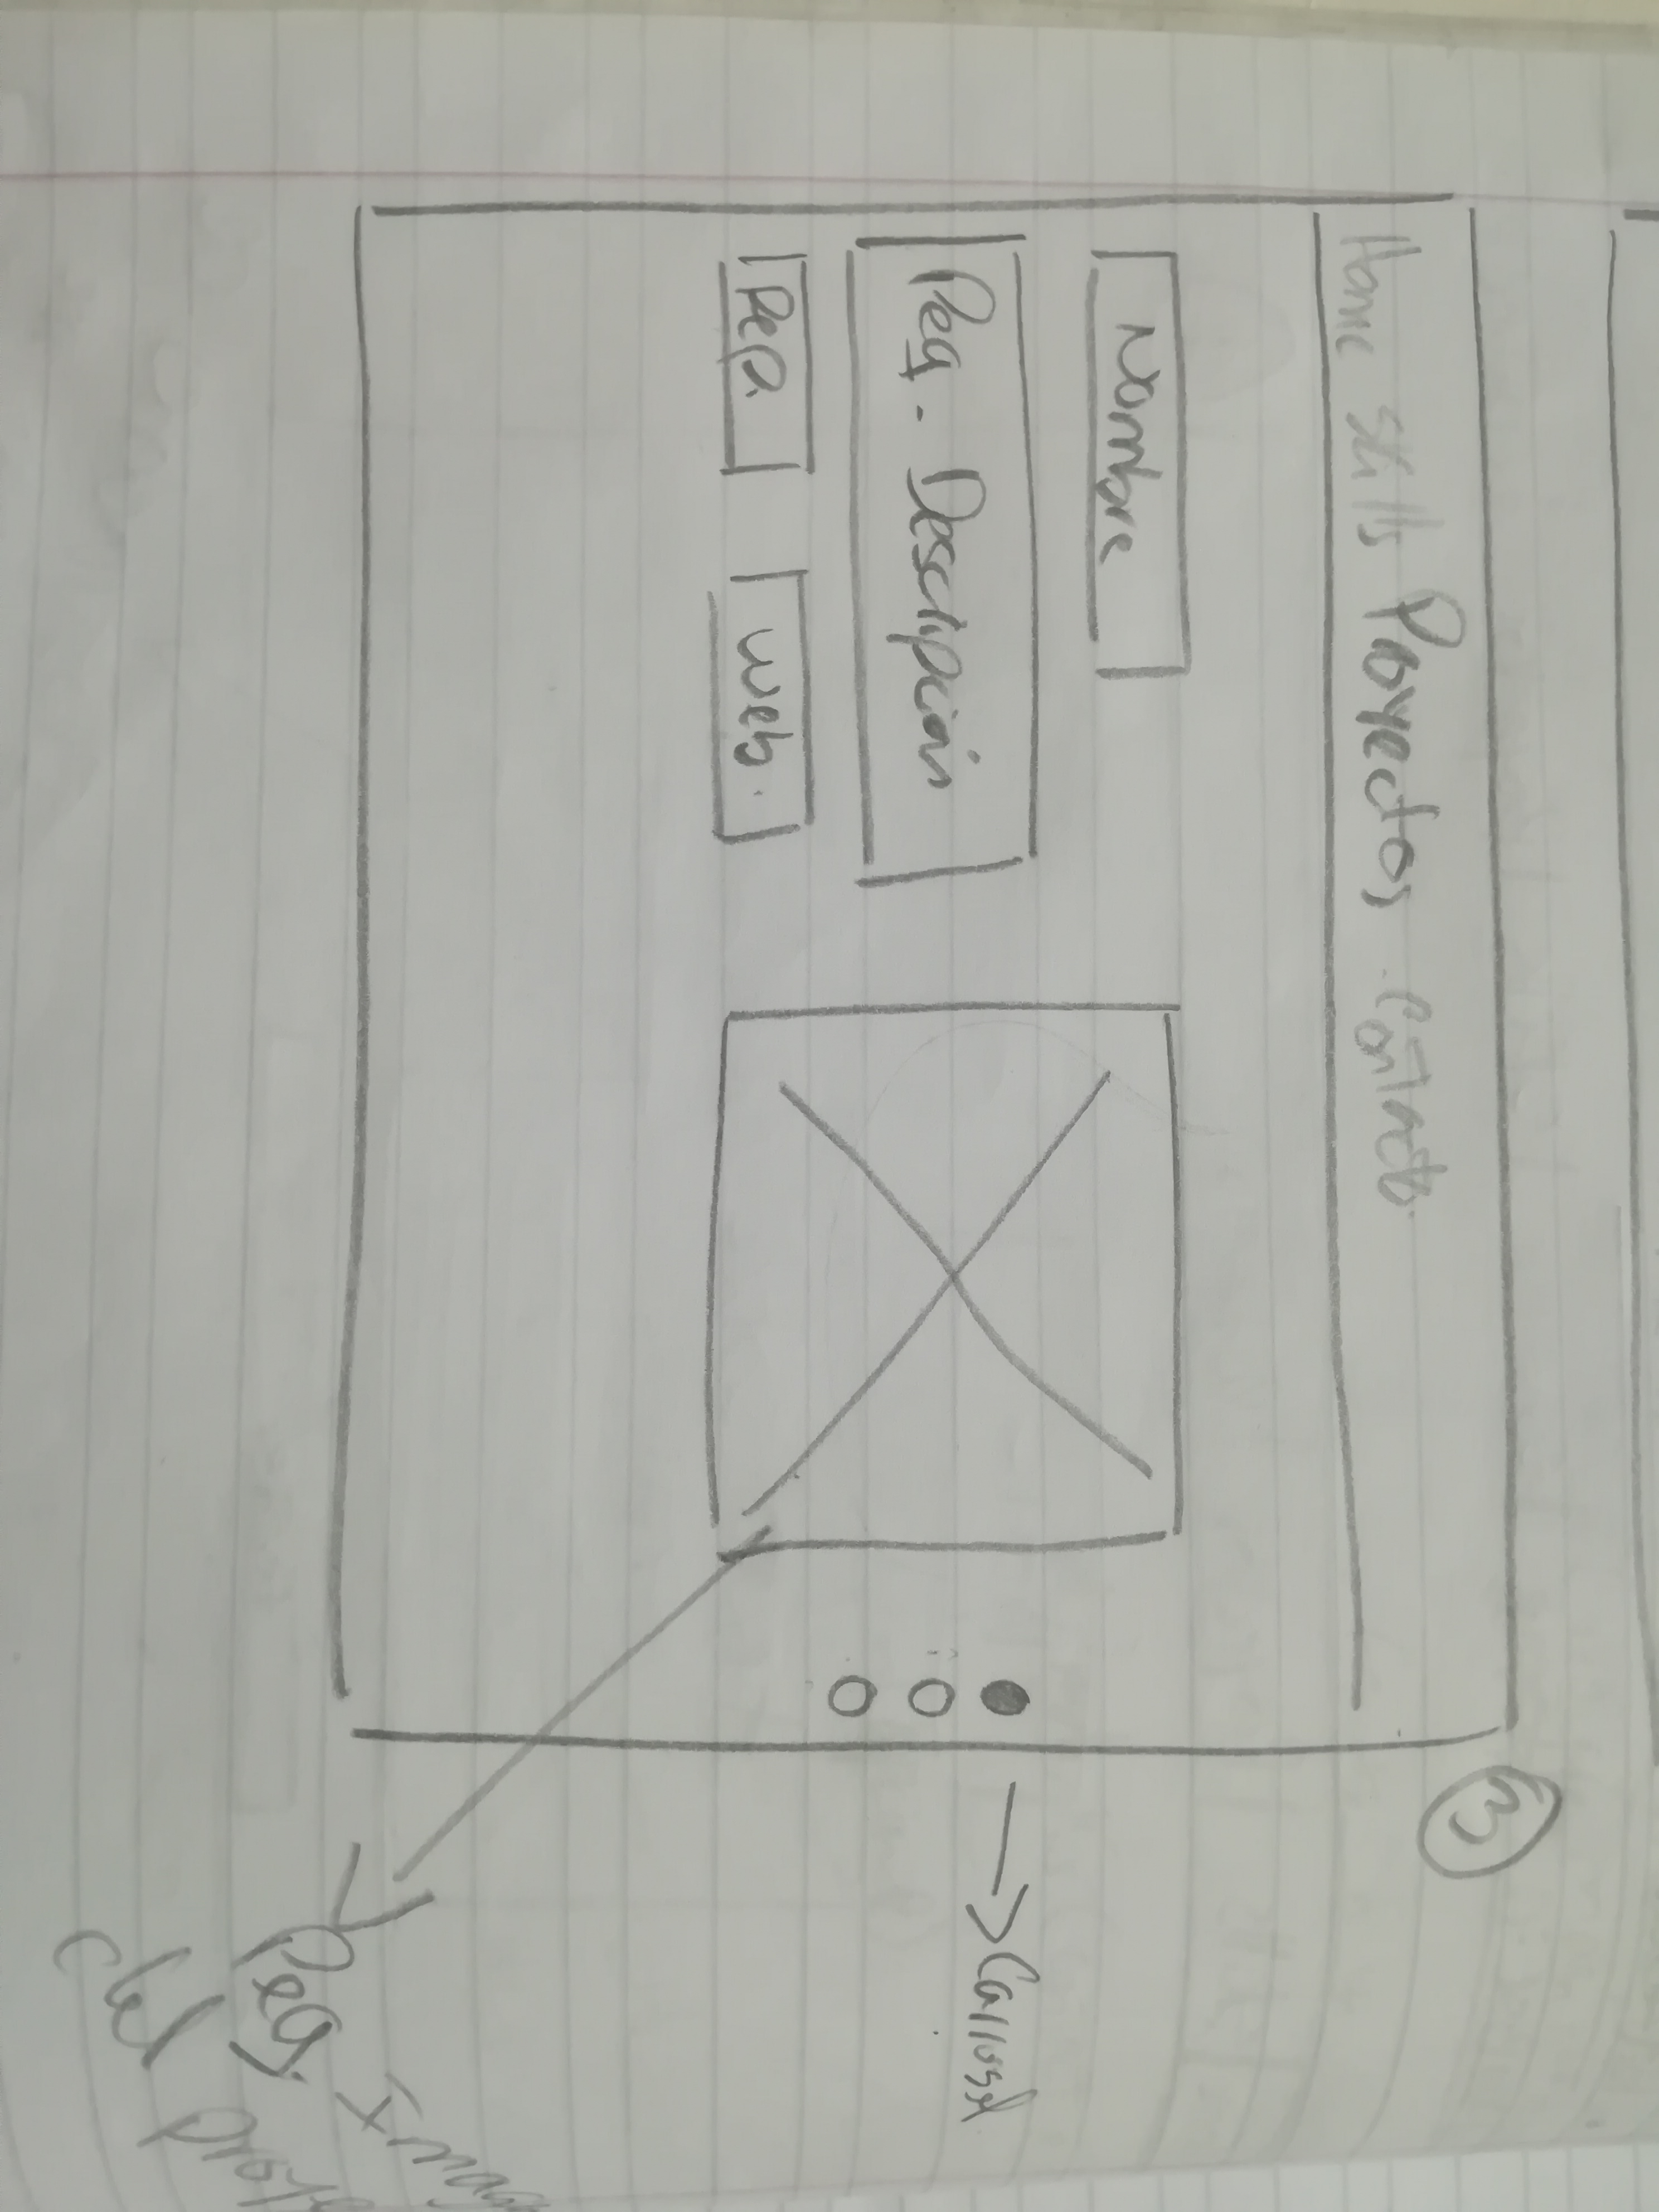 3
Home Skills Proyectos Contacto.
Nombre
Peq. Descripción
Repo
web.
→ Carrusel
Peq. Imag
del proye